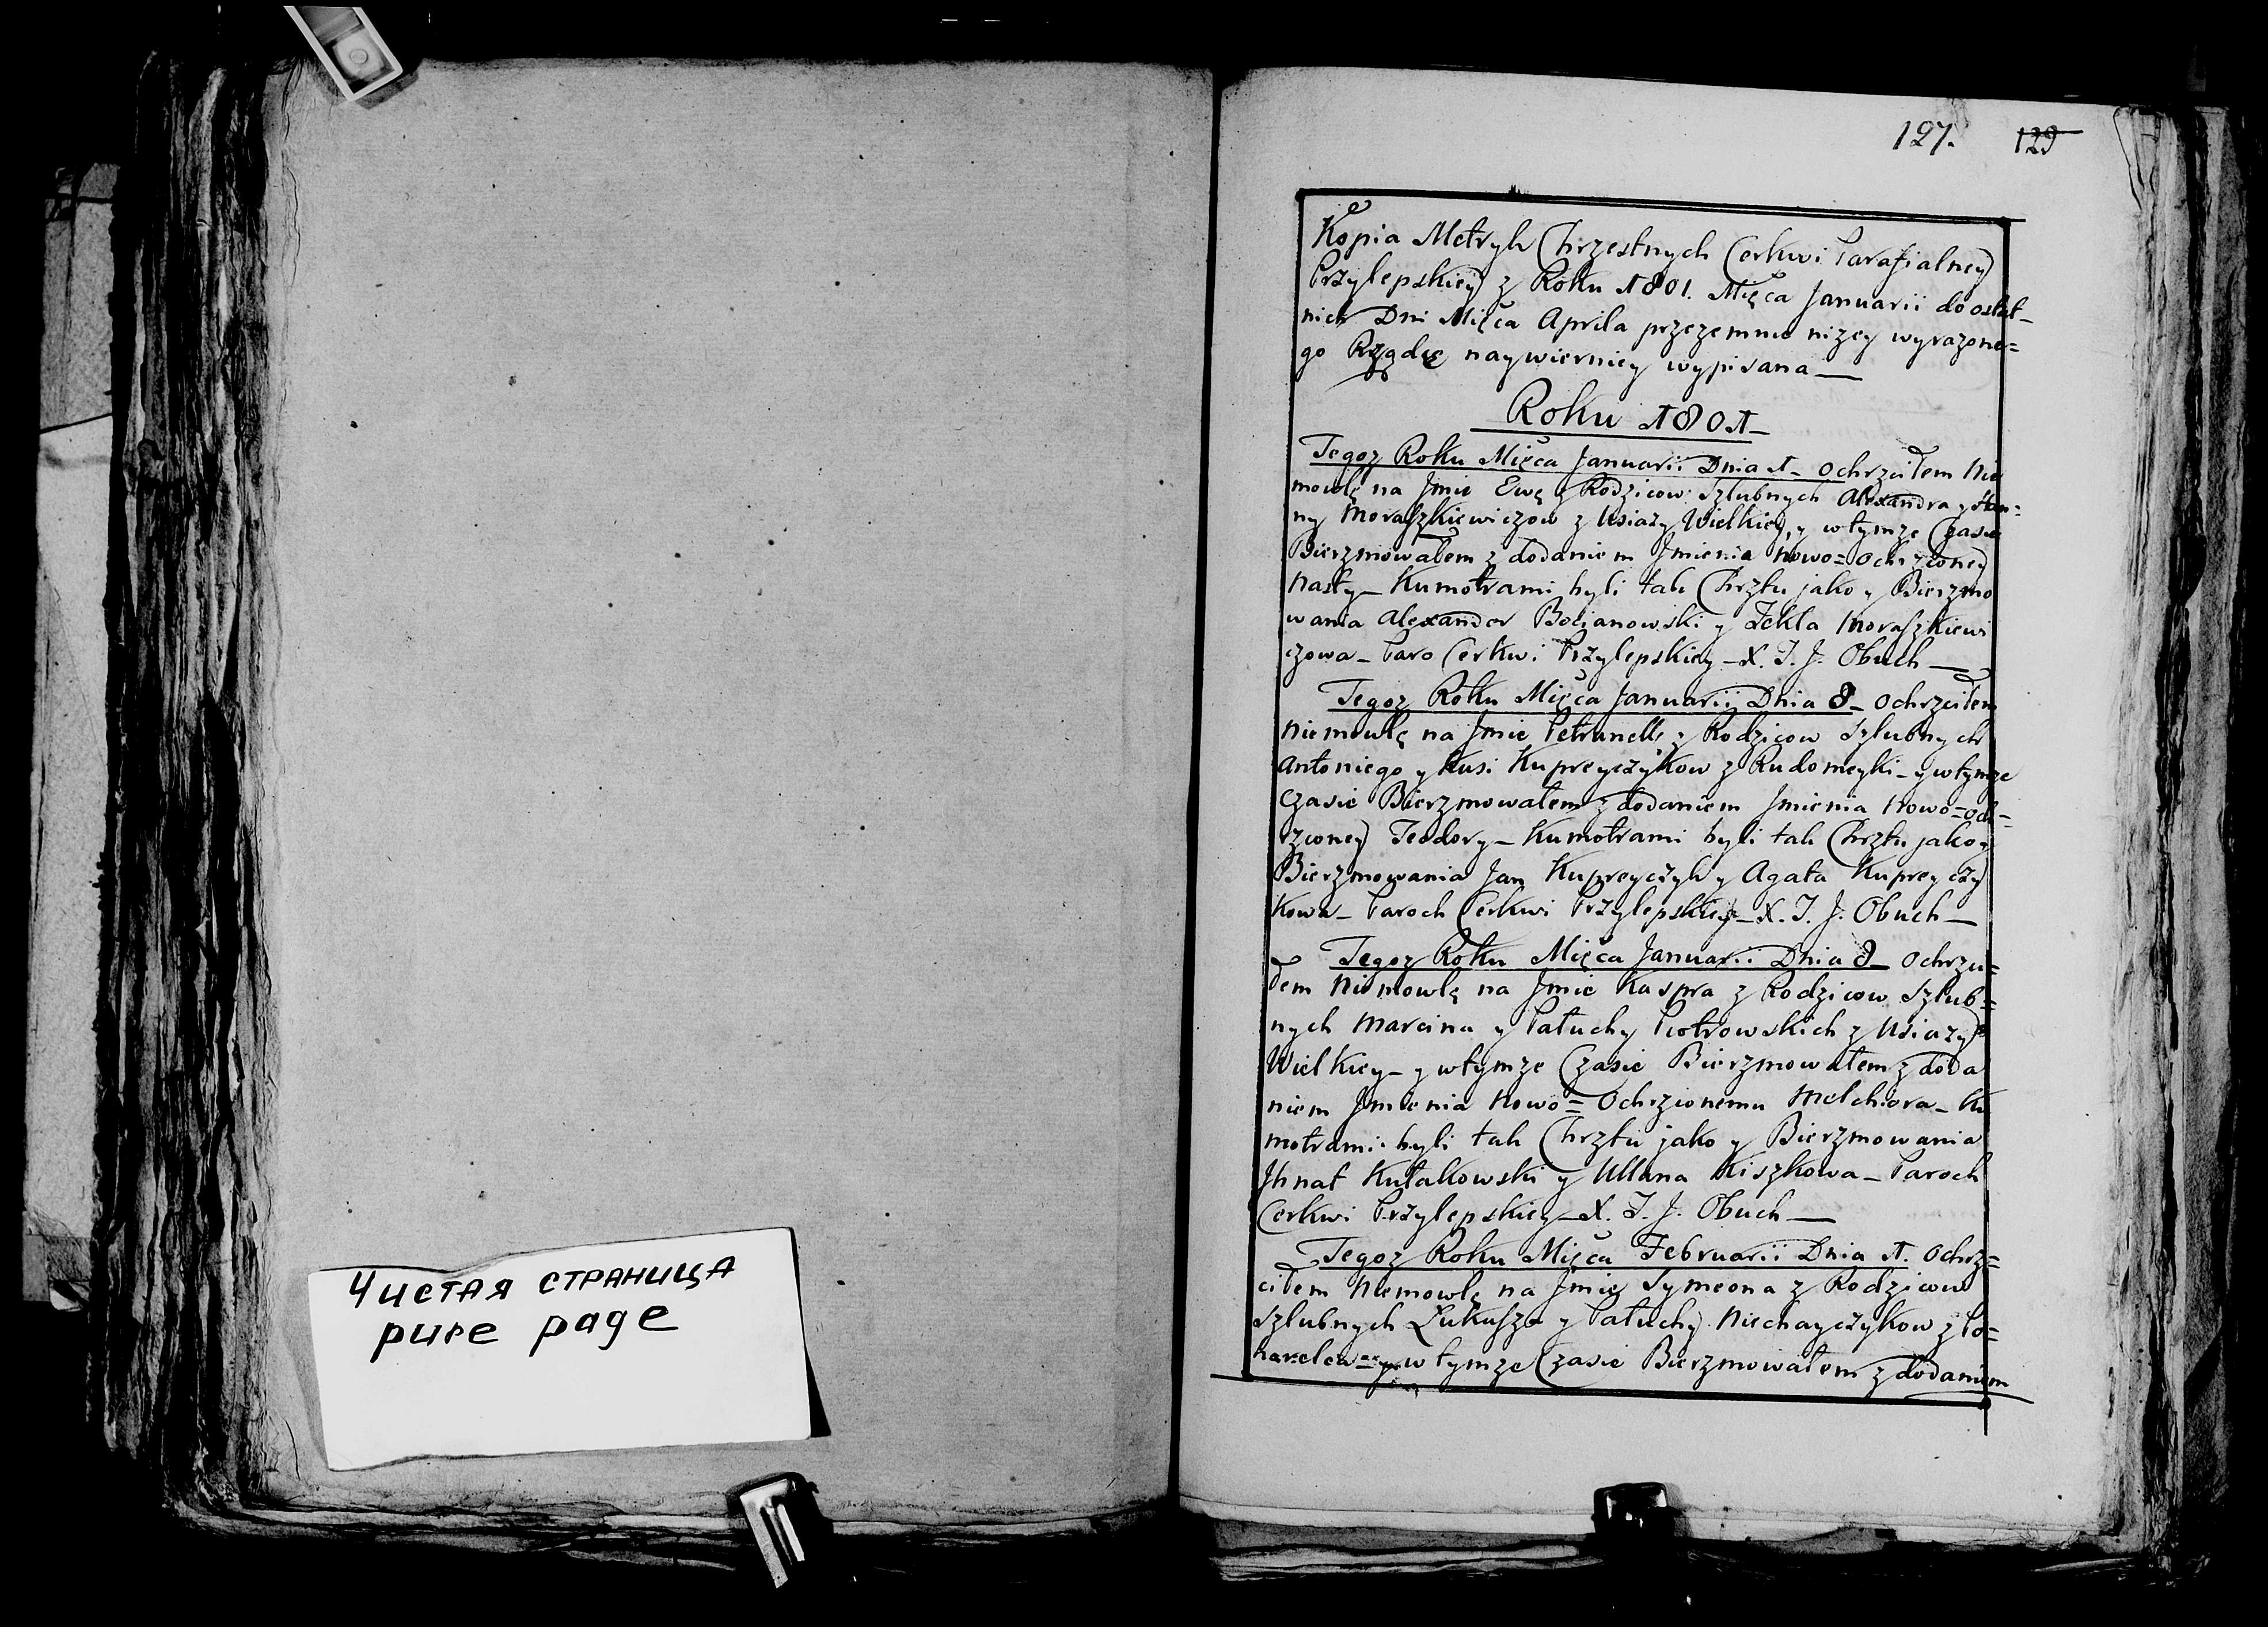 Чистая страница
pure page
127. 129
Kopia Metryk Chrzestnych Cerkwi Parafialney
Przylepskiey z Roku 1801. Mięca Januarii do ostat-
nich Dni Mięca Aprila przezemnie niżey wyrażone=
go Rządcę naywierniey wypisana —
Roku 1801 —
Tegoż Roku Mięca Januarii Dnia 1 - ochrzciłem Nie
mowlę na Jmie Ewę z Rodzicow Szlubnych Alexandra y Han=
ny Moraszkiewiczow z Usiaży Wielkiey, y wtymże Czasie
Bierzmowałem z dodaniem Jmienia Nowo=Ochrzconey
Nasty - Kumotrami byli tak Chrztu jako y Bierzmo
wania Alexander Bocianowski y Tekla Moraszkiewi
czowa - Paro Cerkwi Przylepskiey - X. T. J. Obuch —
Tegoż Roku Mięca Januarii Dnia 8 - Ochrzciłem
Niemowlę na Jmie Petrunellę z Rodzicow Szlubnych
Antoniego y Kusi Kupreyczykow z Rudomeyki - y wtymże
Czasie Bierzmowałem z dodaniem Jmienia Nowo=och=
rzconey Teodory - Kumotrami byli tak Chrztu jako y
Bierzmowania Jan Kupreyczyk y Agata Kupreyczy
kowa - Paroch Cerkwi Przylepskiey - X. T. J. Obuch —
Tegoż Roku Mięca Januarii Dnia 8 - Ochrzci=
łem Niemowlę na Jmie Kaspra z Rodzicow Szlub=
nych Marcina y Pałuchy Piotrowskich z Usiaży
Wielkiey - y wtymże Czasie Bierzmowałem z doda
niem Jmienia Nowo=Ochrzconemu Melchiora - Ku
motrami byli tak Chrztu jako y Bierzmowania
Jhnat Kułakowski y Ullana Kiszkowa - Paroch
Cerkwi Przylepskiey - X. T. J. Obuch —
Tegoż Roku Mięca Februarii Dnia 1. Ochrz=
ciłem Niemowlę na Jmię Symeona z Rodzicow
Szlubnych Łukasza y Pałuchy Niechayczykow z
y w tymże Czasie Bierzmowałem z dodaniem